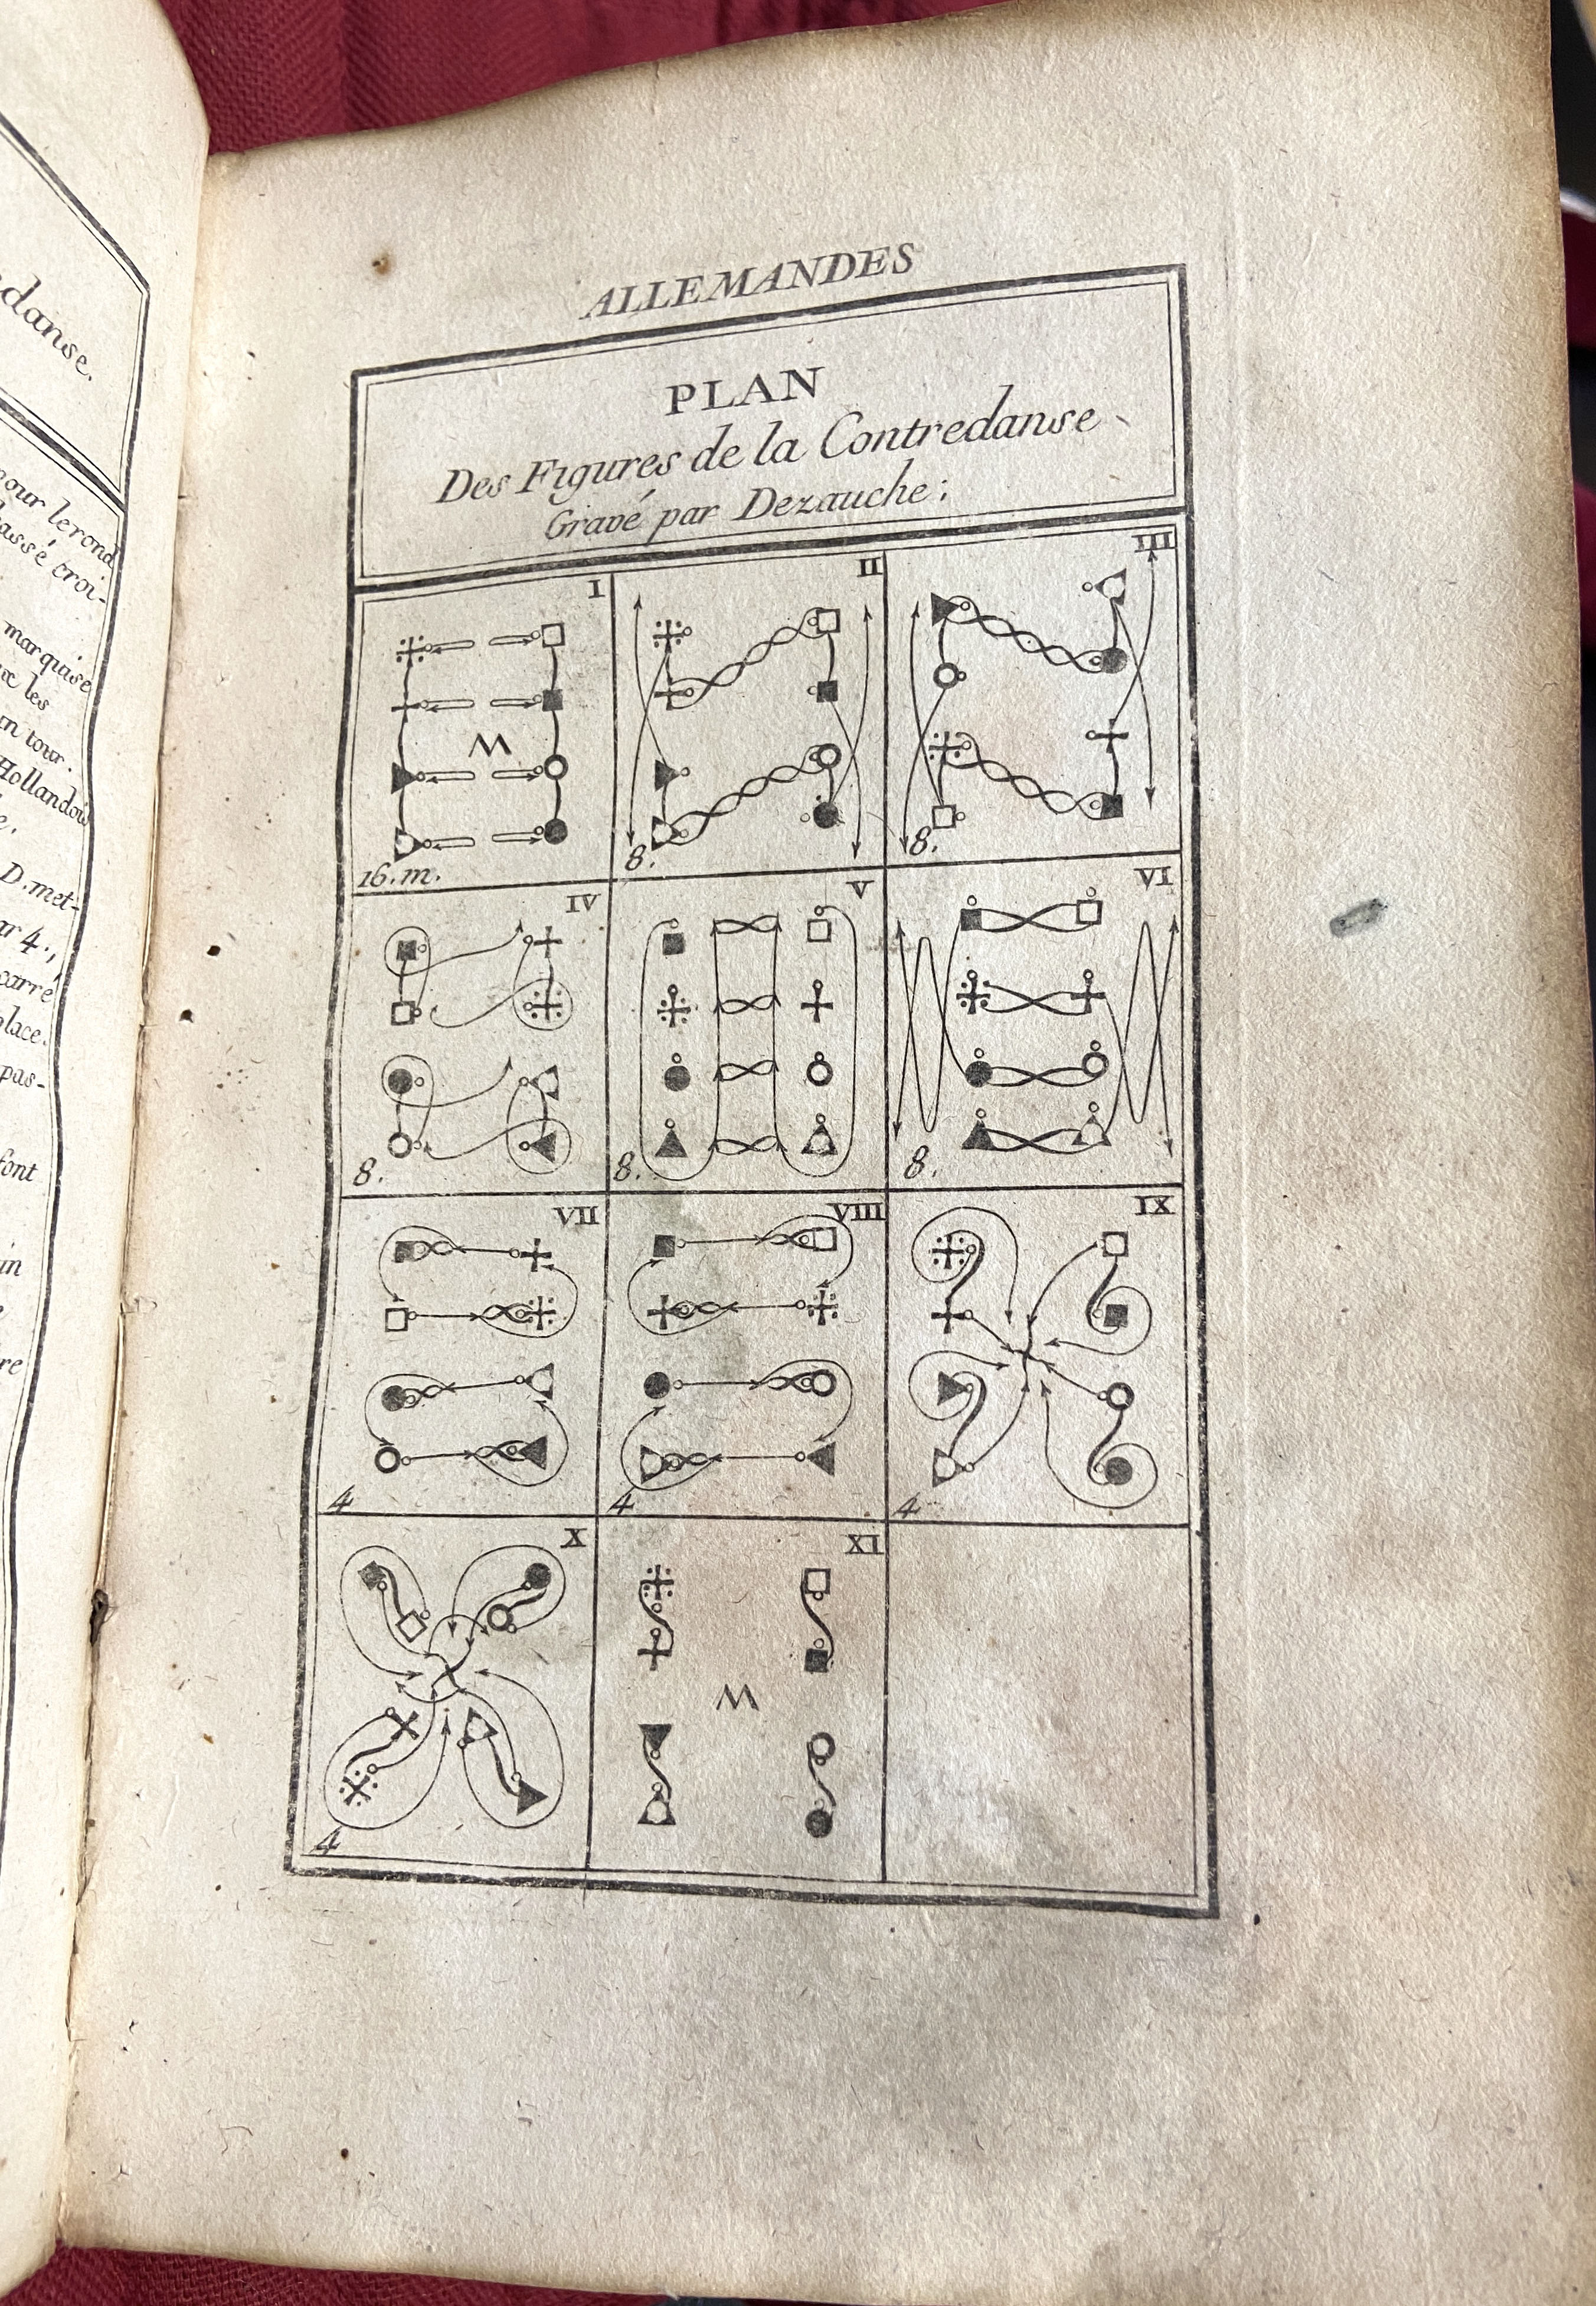 danse.
pour le rond
passé croi-
marquise
les
en tour.
Hollandois
D. met-
ar 4.,
carré
place.
pas-
font
in
re
ALLEMANDES
PLAN
Des Figures de la Contredanse
Gravé par Dezauche;
I
16.m.
II
8.
III
8.
IV
8.
V
8.
VI
8.
VII
4
VIII
4
IX
4
X
4
XI